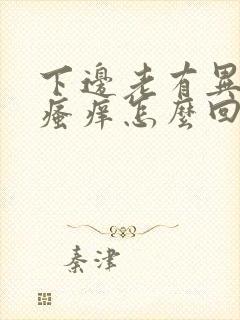 下邊老有異
瘙癢怎麼回
秦津